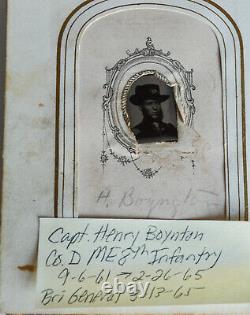 H. Boyngton
Capt. Henry Boynton
Co, D ME 8th Infantry
9-6-61 → 2-26-65
Bri General 3-13-65